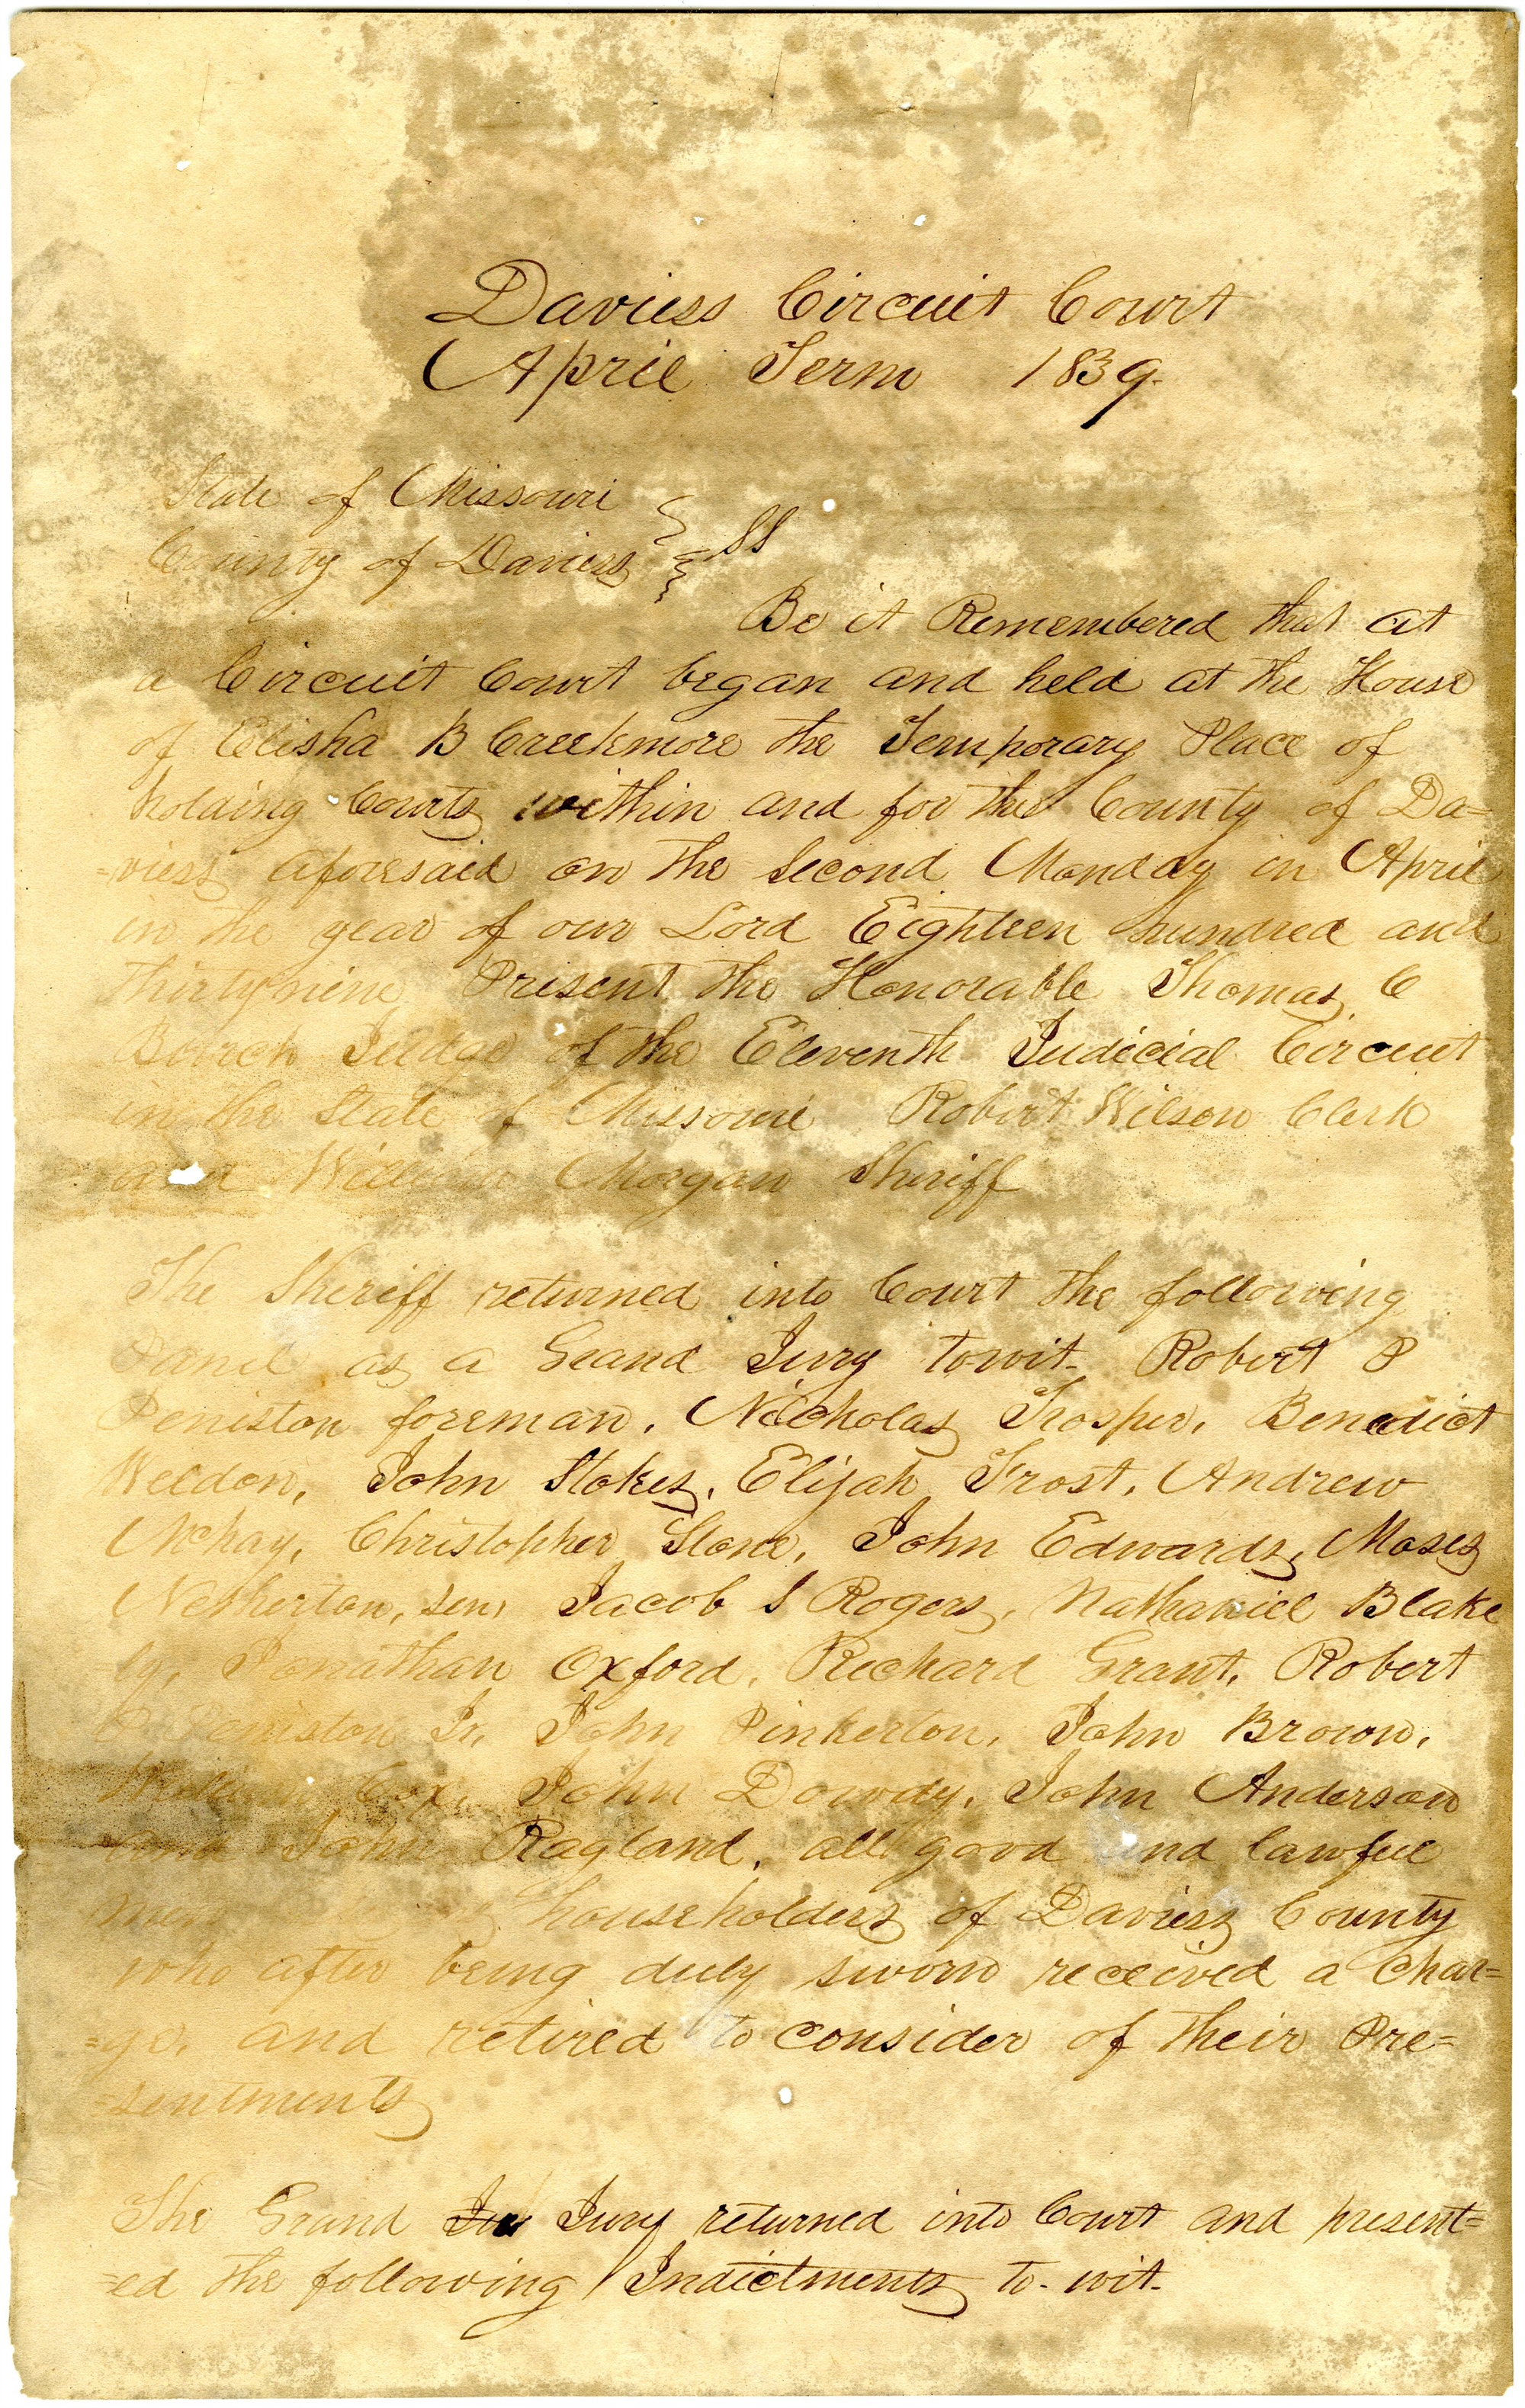 Daviess Circuit Court
April Term 1839.
State of Missouri
County of Daviess } SS
Be it Remembered that at
a Circuit Court began and held at the House
of Elisha B Creekmore the Temporary Place of
holding Courts within and for the County of Da=
=viess aforesaid on the second Monday in April
in the year of our Lord Eighteen hundred and
thirty nine Present the Honorable Thomas C
Burch Judge of the Eleventh Judicial Circuit
in the State of Missouri Robert Wilson Clerk
and William Morgan Sheriff
The Sheriff returned into Court the following
Panel as a Grand Jury towit- Robert P
Peniston foreman, Nicholas Trosper, Benedict
Weldon, John Stokes, Elijah Frost, Andrew
McHay, Christopher Stone, John Edwards, Moses
Netherton, sen, Jacob S Rogers, Nathaniel Blake
ly, Jonathan Oxford, Richard Grant, Robert
P Peniston Jr, John Pinkerton, John Brown,
William Cox, John Dowdy, John Anderson
and John Ragland, all good and lawful
men householders of Daviess County
who after being duly sworn received a char=
=ge, and retired to consider of their Pre=
=sentments
The Grand Jury returned into Court and present=
=ed the following Indictments to-wit-